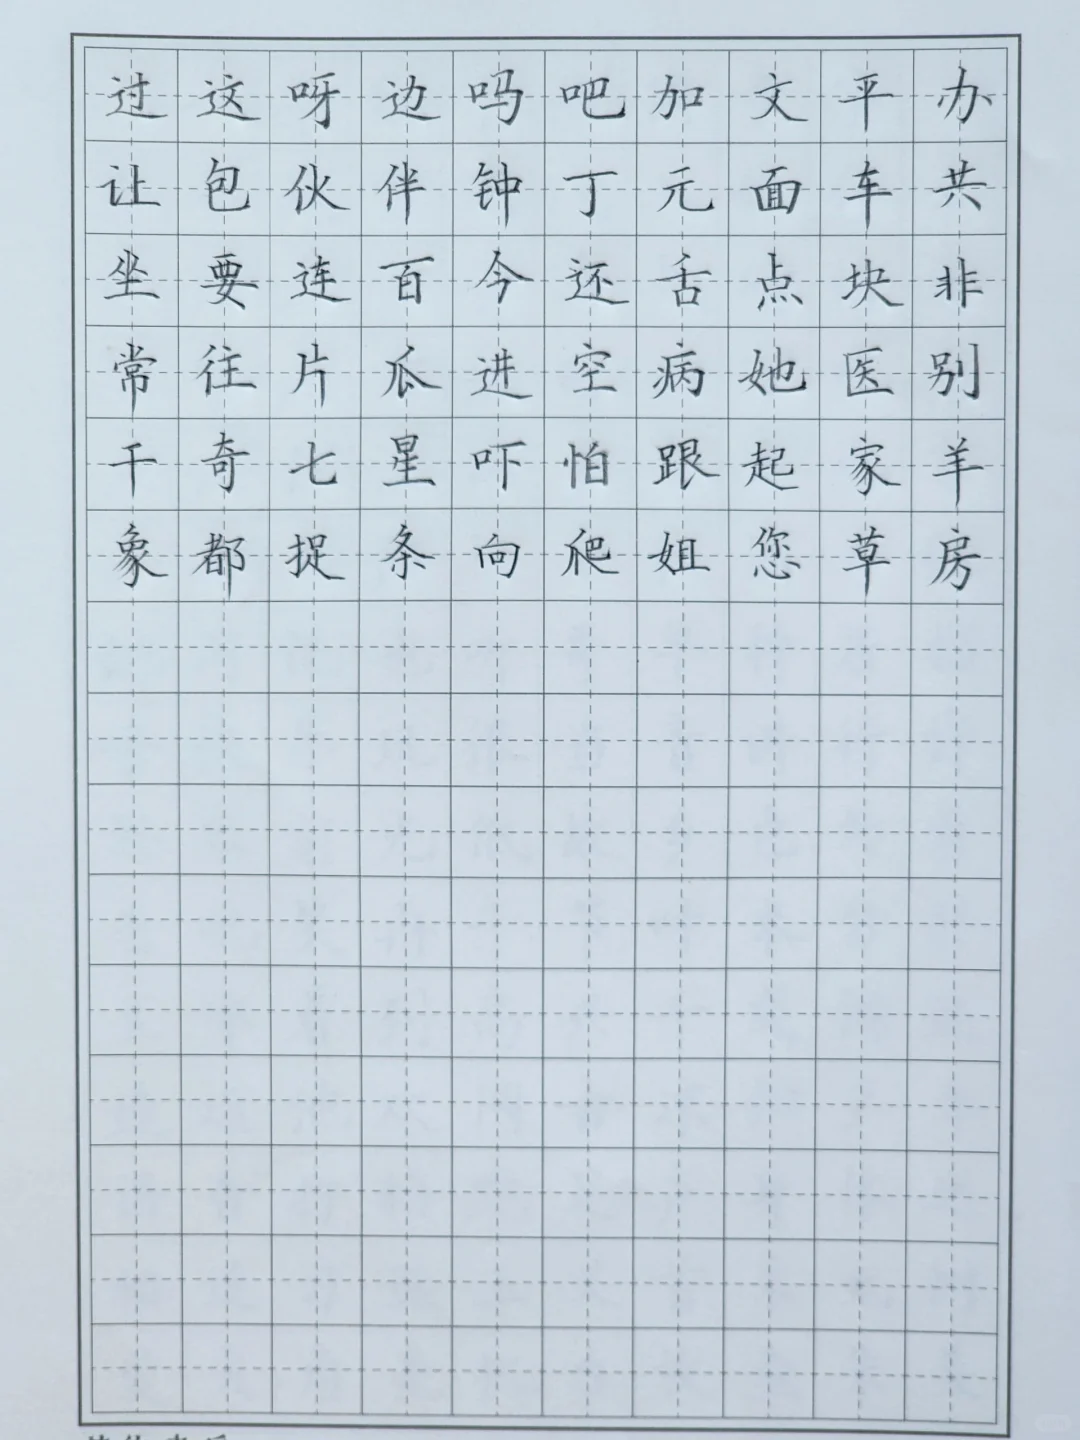 过这呀边吗吧加文平办
让包伙伴钟丁元面车共
坐要连百今还舌点块非
常往片瓜进空病她医别
干奇七星吓怕跟起家羊
象都捉条向爬姐您草房